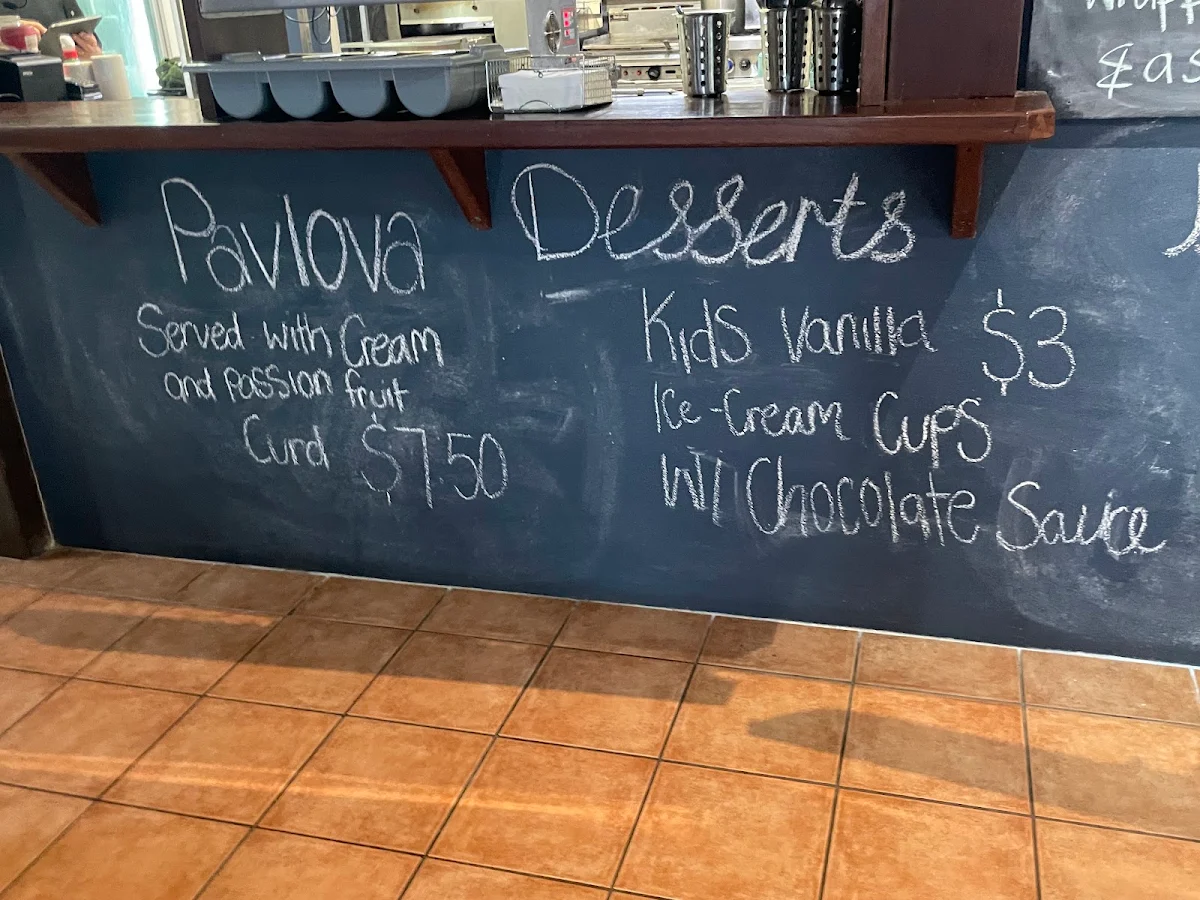 Desserts
Pavlova
Served with Cream
and Passion fruit
Curd $7.50
Kids Vanilla $3
Ice-Cream Cups
W/ Chocolate Sauce